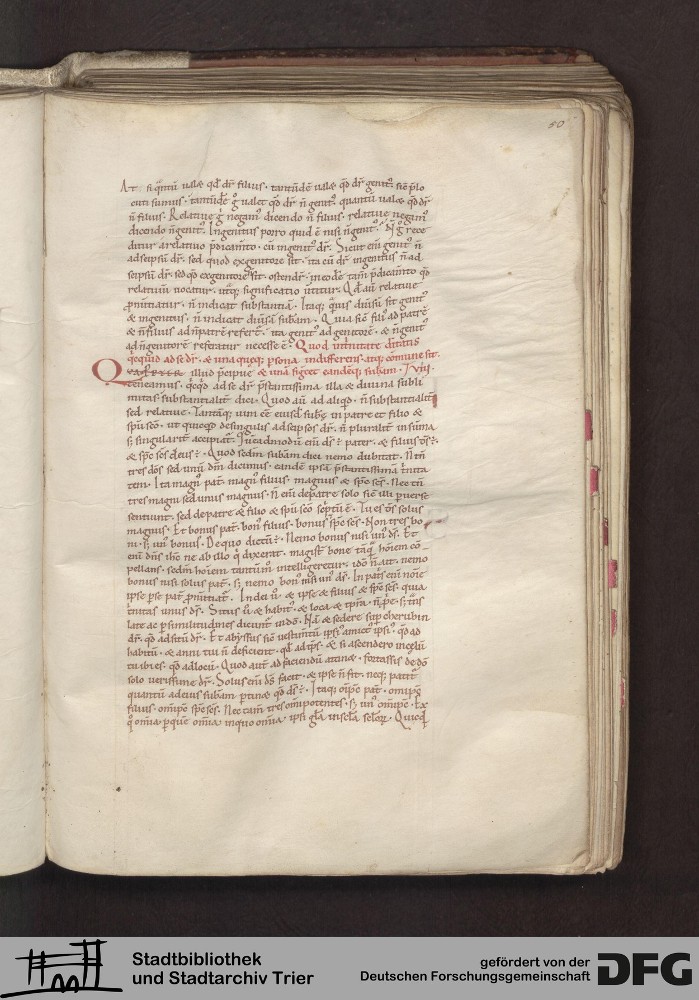 50
At si q̄ntū ualæ qd̄ dr̄ filius · tantūdē ualæ qd̄ dr̄ genit᷒ · sic̄ p̄lo
cuti sumus · tantūdē g̊ ualet qd̄ dr̄ n̄ genit᷒ · quantū ualæ qd̄ dr̄
n̄ filius · Relatiue g̊ negam᷒ dicendo n̄ filius · relatiue negam᷒
dicendo n̄ genit᷒ · Ingenitus porro quid ē nisi n̄ genit᷒ · N̄ g̊ rece
ditur a relatiuo p̄dicam̄to · cū ingenit᷒ dr̄ · Sicut eni genit᷒ n̄
ad seipsū dr̄ · sed quod ex genitore sit · ita cū dr̄ ingenitus n̄ ad
seipsū dr̄ · sed qd̄ ex genitore n̄ sit · ostendr̄ · in eodē tam̄ p̄dicam̄to qd̄
relatiuū uocatur · utraq; significatio uertitur · Qd̄ aū relatiue
pronūtiatur · n̄ indicat substantiā · Itaq; q̄uis diuersū sit genit᷒
& ingenitus · n̄ indicat diuersā subam̄ · Quia sic̄ filī ad patrē
& n̄ filius ad n̄ patrē refert᷒ · ita genit᷒ ad genitorē · & n̄ genit᷒
ad n̄ genitorē referatur necesse ē · Quod in trinitate deitatis
qicquid ad se dr̄ · & una queq; psona indifferens atq; comune sit ·
Quafrter illud p̄cipue & unā significet eandēq; subam̄ · I viii ·
teneamus · qicqd ad se dr̄ p̄stantissima illa & diuina subli
mitas substantialit̄ dici · Quod aū ad aliqd · n̄ substantialit̄
sed relatiue · Tantāq; uim eē eiusdē subę in patre et filio &
spū scō · ut quicqd de singulis ad seipsos dr̄ · n̄ pluralit̄ in sūma
s; singularit̄ accipiat᷒ · Quēadmodū eni d̄s ē pater · & filius d̄s ē
& sp̄c scs deus ē · Quod sedm̄ subam̄ dici nemo dubitat · N̄ tn̄
tres dōs sed unū dm̄ dicimus · eandē ipsā p̄stantissimā t̄nita
tem · Ita magn᷒ pat̄ · magn᷒ filius · magnus & sp̄c scs · Nec tn̄
tres magni sed unus magnus · N̄ eni de patre solo sic̄ illi p̄uerse
sentiunt · sed de patre & filio & spū scō sc̄ptū ē · Tu es d̄s solus
magnus · Et bonus pat̄ · bon᷒ filius · bonus sp̄c scs · Non tres bo
ni · s; un᷒ bonus · De quo dictū ē · Nemo bonus nisi un᷒ d̄s · Et
eni dn̄s ihc̄ ne ab illo q̊ dixerat · magist̄ bone tāq̄ hoīem cō-
pellans · sedm̄ hoīem tantūm᷒ intelligeretur · idō n̄ ait · nemo
bonus nisi solus pat̄ · s; nemo bon᷒ nisi un᷒ d̄s · In pat̄s eni noīe
ipse p se pat̄ pnūtiat᷒ · In dei ū & ipse & filius & sp̄c scs · quia
t̄nitas unus d̄s · Situs ū & habit᷒ · & loca & tp̄ra · n̄ ppe · s; t̄ns
late ac p similitudines dicunt᷒ in dō · Nā & sedere sup cherubin
dr̄ · qd̄ ad sitū dr̄ · Et abyssus sic̄ uestimtū ipsī amict᷒ ipsī · qd̄ ad
habitū · & anni tui n̄ deficient · qd̄ ad tp̄s · & si ascendero in cęlū
tu ibi es · qd̄ ad locū · Quod aut̄ ad faciendū attinæ · fortassis de dō
solo uerissime dr̄ · Solus eni d̄s facit · & ipse n̄ fit · neq; patit᷒
quantū ad eius subam̄ p̄tinæ qd̄ d̄s ē · Itaq; oīpc̄ pat̄ · omipc̄
filius · omipc̄ sp̄c scs · Nec tam̄ tres omipotentes · s; un᷒ omipc̄ · Ex
q̊ om̄ia p que om̄ia in quo om̄ia · ipsi gl̄a in scl̄a scl̄or᷒ · Quicq̄
Stadtbibliothek
und Stadtarchiv Trier
gefördert von der
Deutschen Forschungsgemeinschaft
DFG